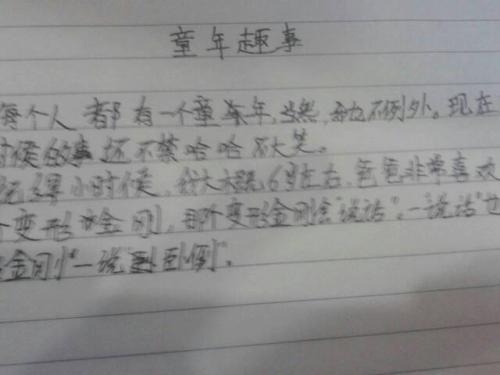 童年趣事
每个人都有一个童年,当然,我也不例外。现在
时候的事还不禁哈哈大笑。
记得小时候,我大概6岁左右,爸爸非常喜欢
个变形金刚,那个变形金刚会"说话",一"说话"也
金刚"一说 卧倒"。